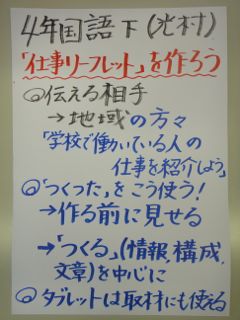 4年国語下(光村)
「仕事リーフレット」を作ろう
◎伝える相手
→地域の方々
「学校で働いている人の
仕事を紹介しよう」
◎「つくった」をこう使う!
→作る前に見せる
→「つくる」(情報,構成,
文章)を中心に
◎タブレットは取材にも使える